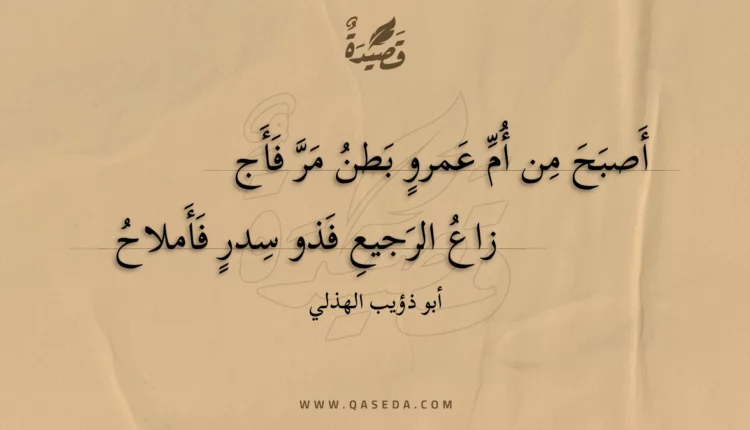 قَصِيدَةٌ
أَصبَحَ مِن أُمِّ عَمروٍ بَطنُ مَرَّ فَأَج
زاعُ الرَجيعِ فَذو سِدرٍ فَأَملاحُ
أبو ذؤيب الهذلي
WWW.QASEDA.COM